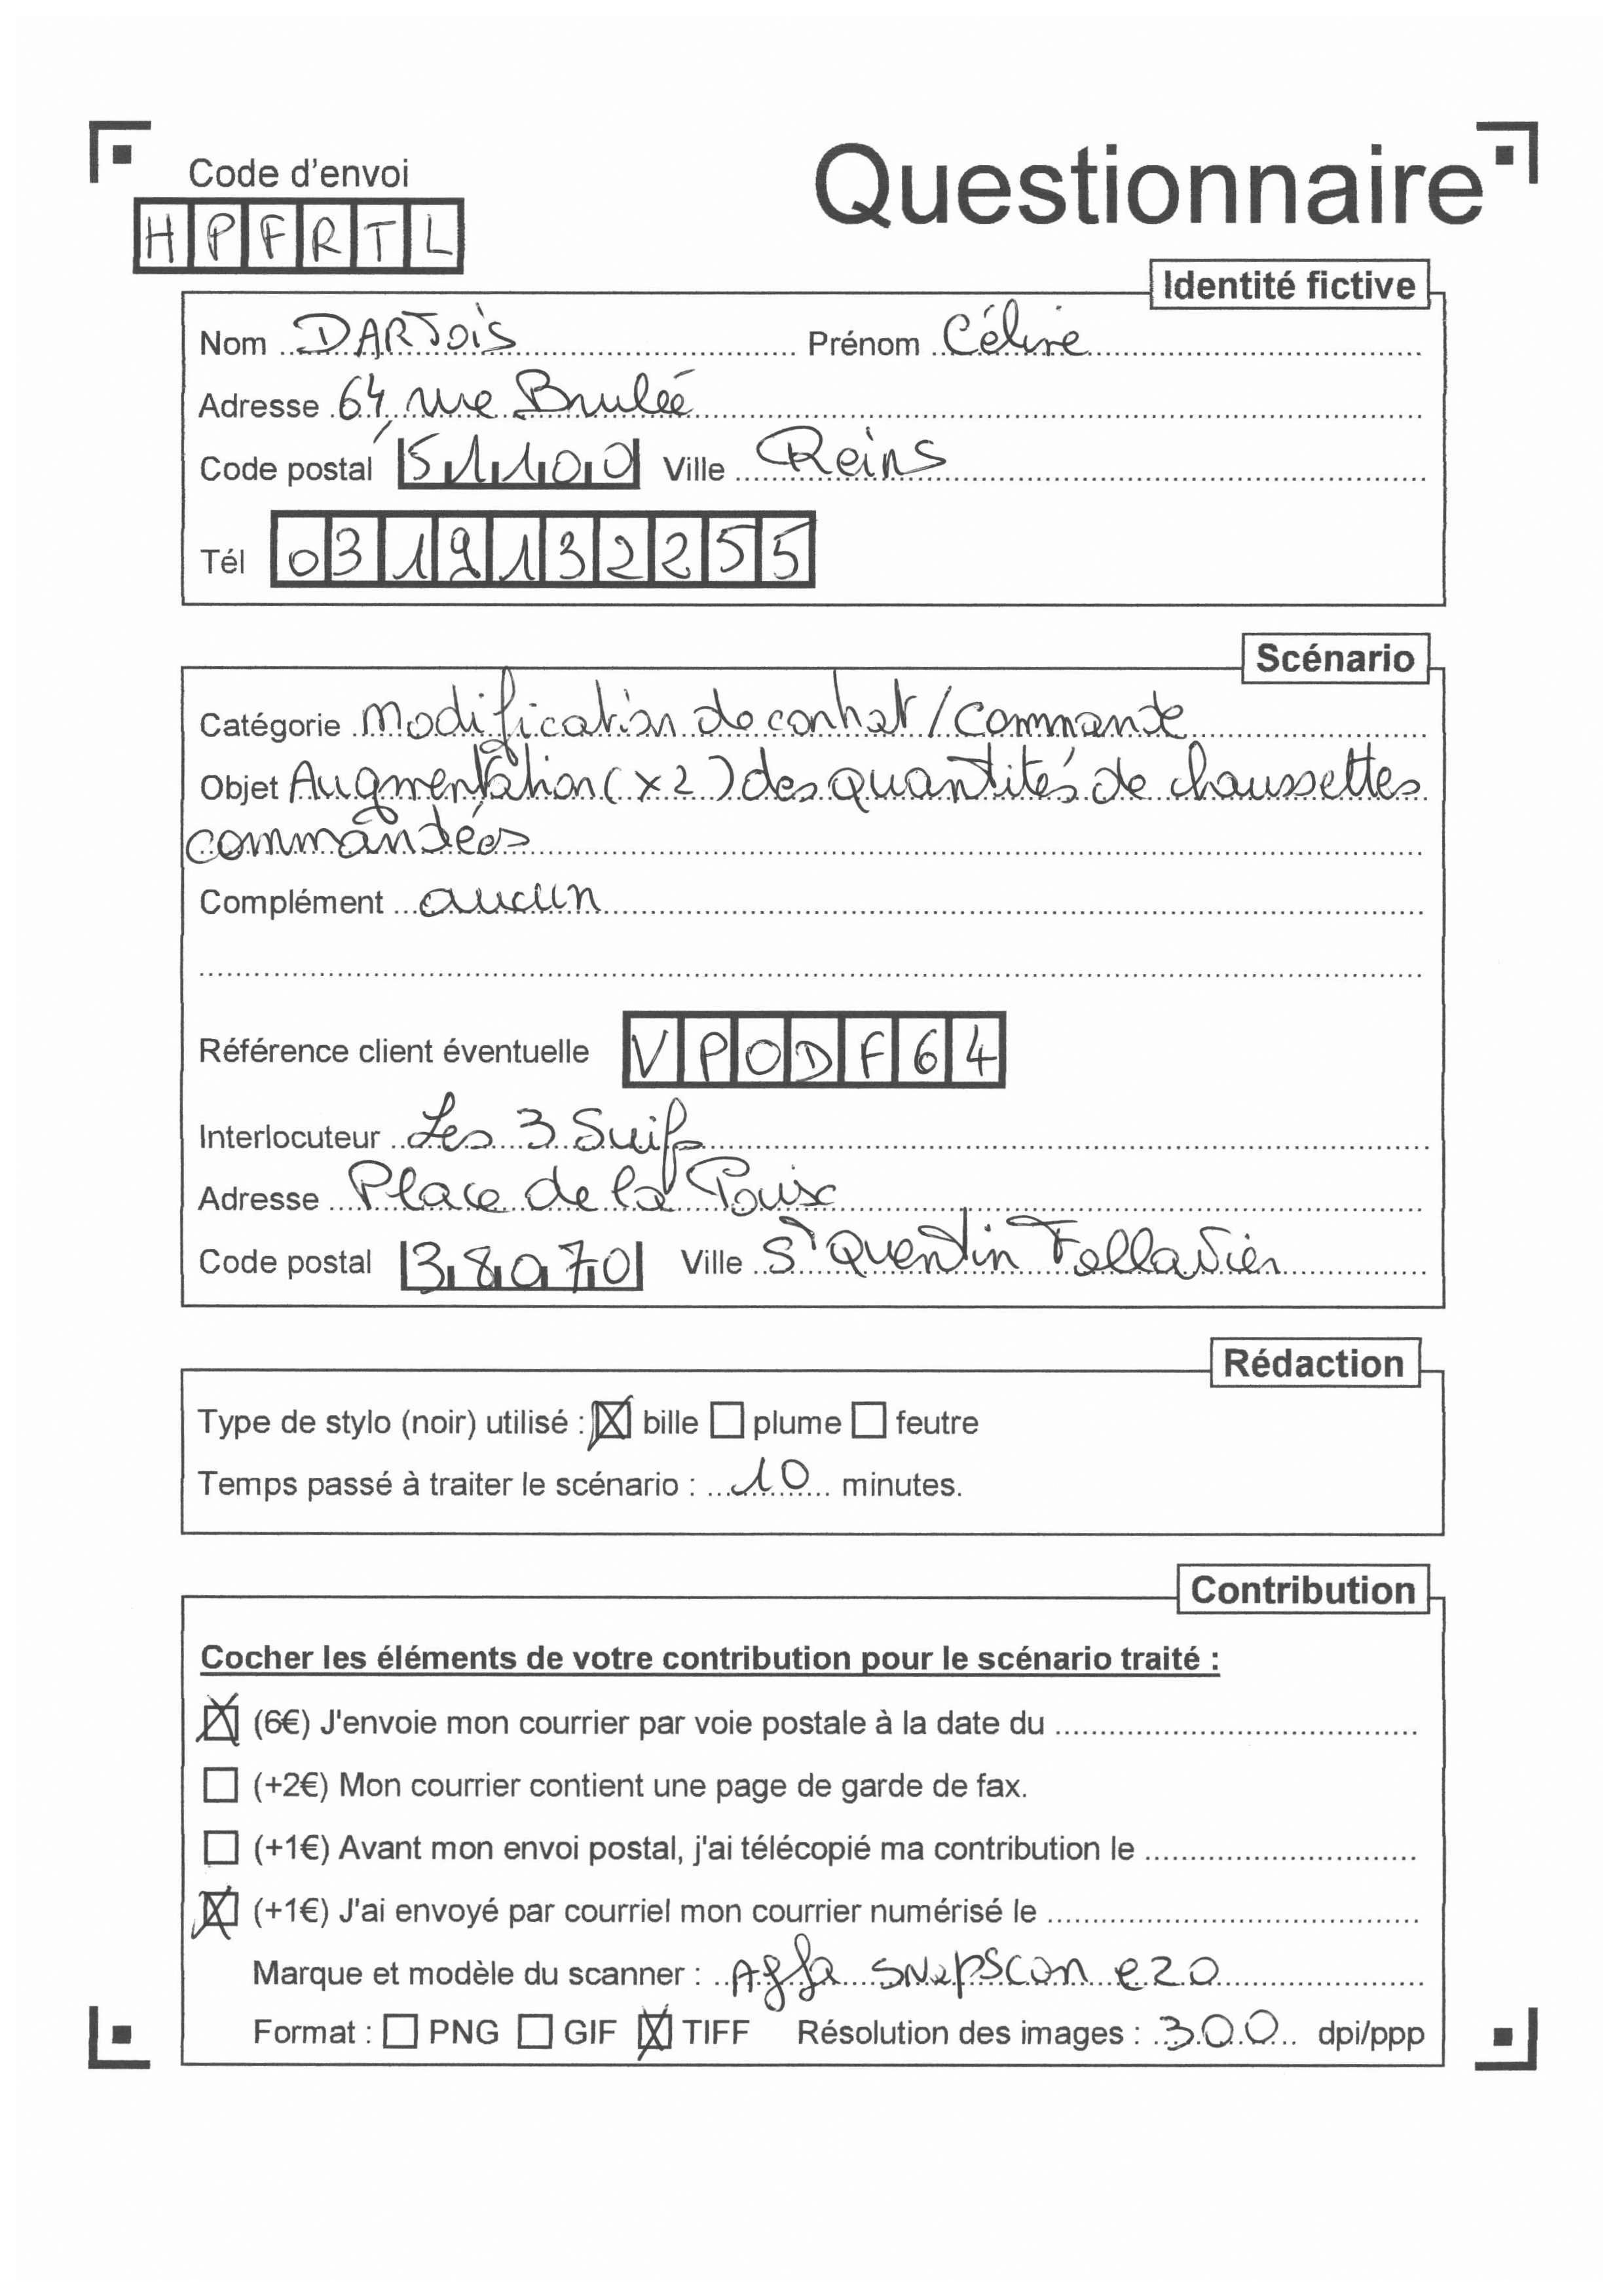 Code d'envoi
Questionnaire
HPFRTL
Identité fictive
Nom DARJOIS Prénom Céline
Adresse 64 rue Brulée
Code postal 51100 Ville Reins
Tél 0319132255
Scénario
Catégorie Modification de contrat / commande
Objet Augmentation (x2) des quantités de chaussettes
commandées
Complément aucun
Référence client éventuelle VPODF64
Interlocuteur Les 3 Suifs
Adresse Place de la
Code postal 38070 Ville St Quentin Fallavier
Rédaction
Type de stylo (noir) utilisé : bille plume feutre
Temps passé à traiter le scénario : 10 minutes.
Contribution
Cocher les éléments de votre contribution pour le scénario traité :
(6€) J'envoie mon courrier par voie postale à la date du
(+2€) Mon courrier contient une page de garde de fax.
(+1€) Avant mon envoi postal, j'ai télécopié ma contribution le
(+1€) J'ai envoyé par courriel mon courrier numérisé le
Marque et modèle du scanner : Agfa SNapScan e20
Format : PNG GIF TIFF Résolution des images : 300 dpi/ppp